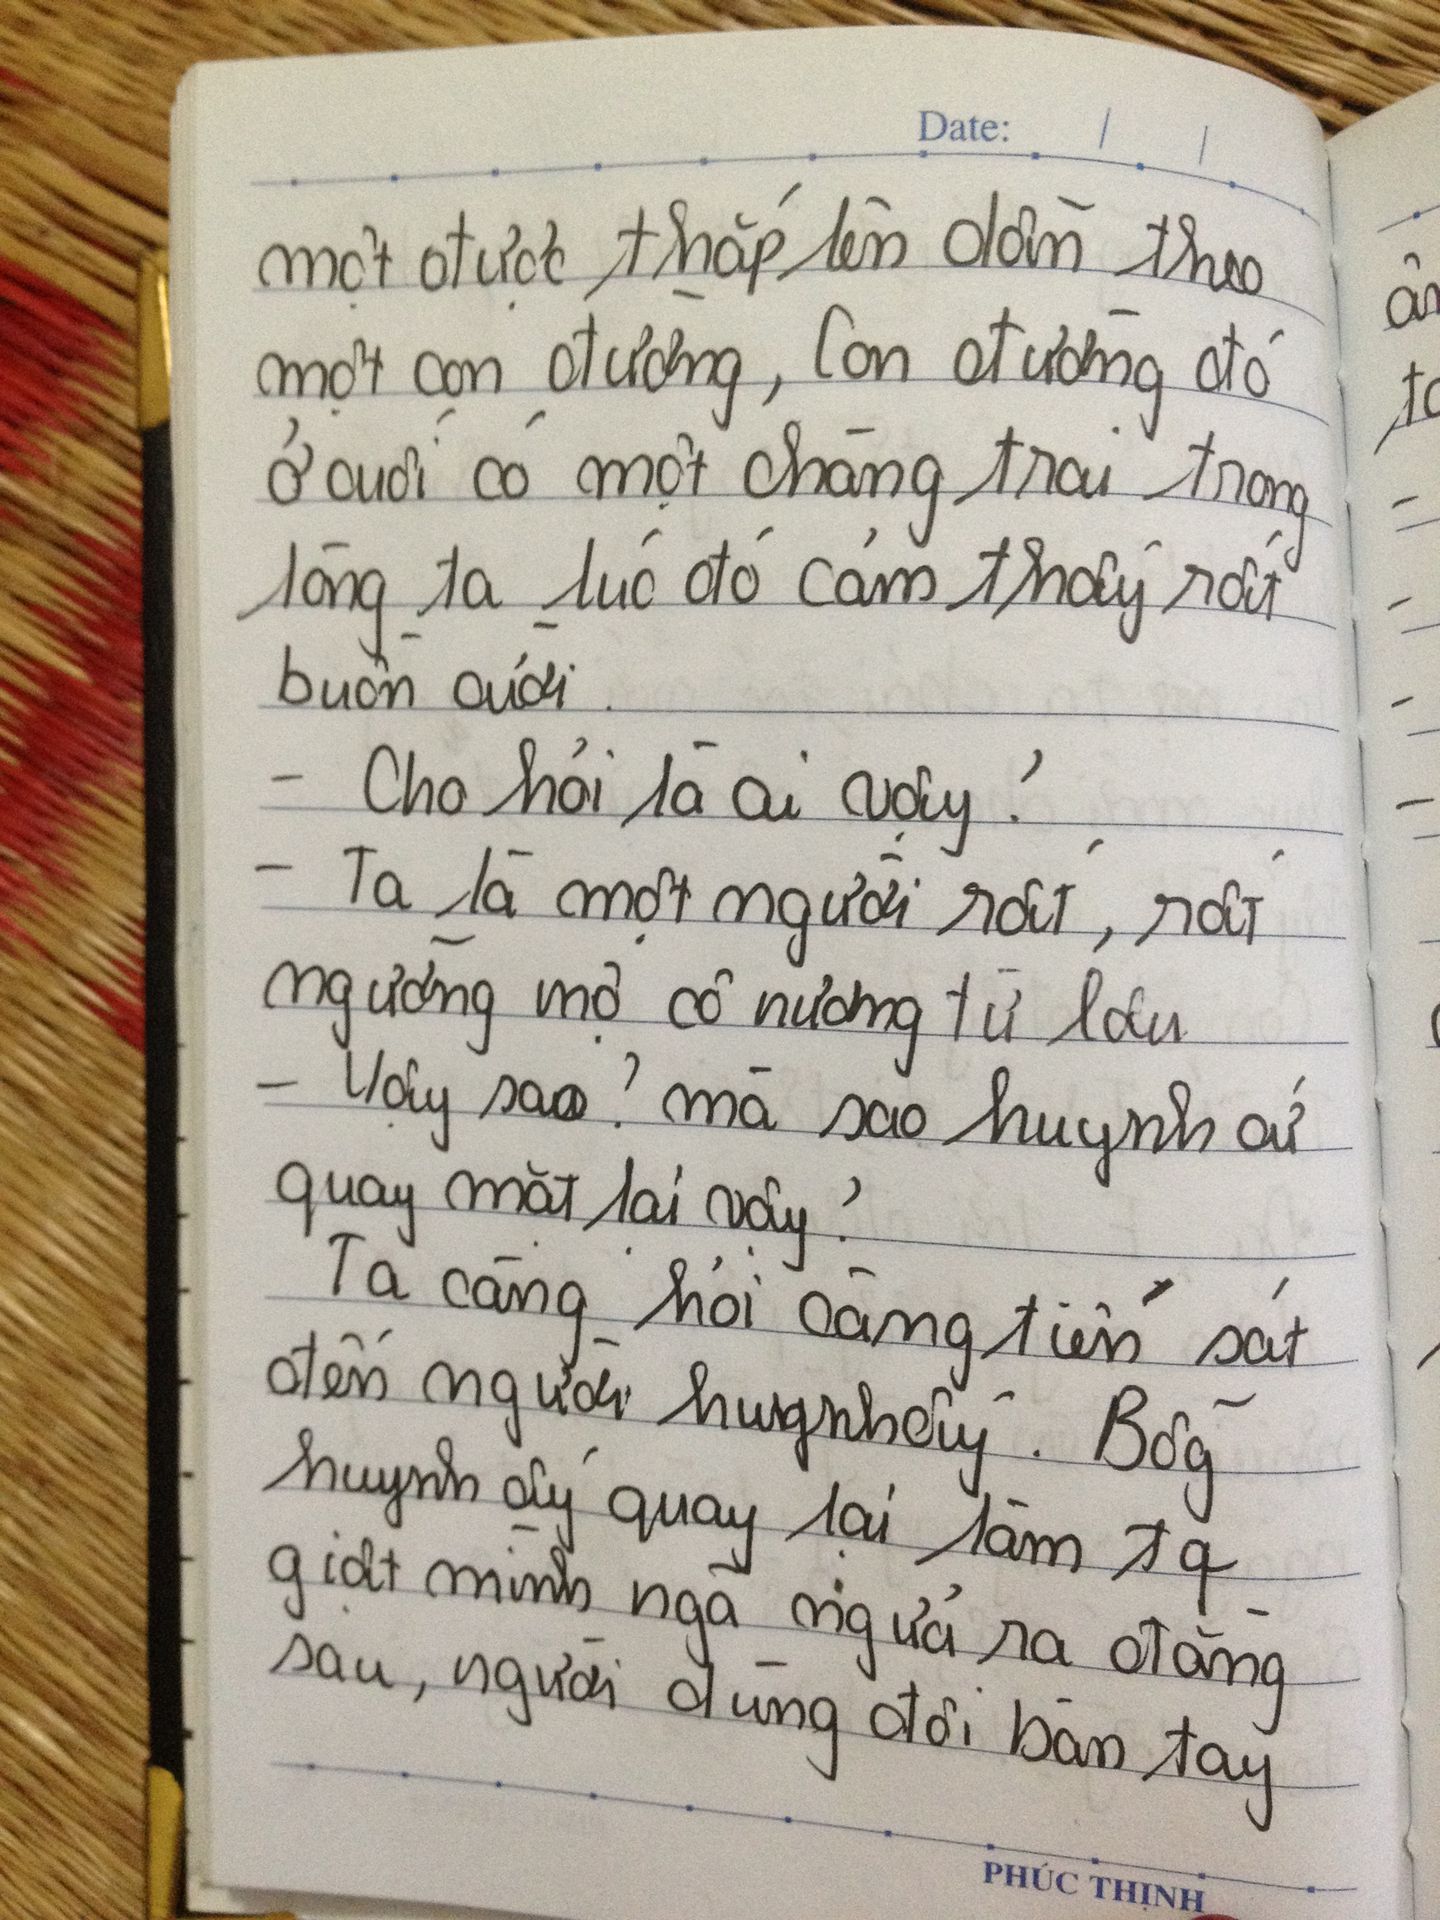 Date: / /
một được thắp lên dần theo
một con đường, Con đường đó
ở cuối có một chàng trai trong
lòng ta lúc đó cảm thấy rất
buồn cười.
- Cho hỏi là ai vậy?
- Ta là một người rất, rất
ngưỡng mộ cô nương từ lâu
- Vậy sao? mà sao huynh cứ
quay mặt lại vậy?
Ta càng hỏi càng tiến sát
đến người huynh ấy. Bỗg
huynh ấy quay lại làm ta
giật mình ngã ngửa ra đằng
sau, người dùng đôi bàn tay
PHÚC THỊNH